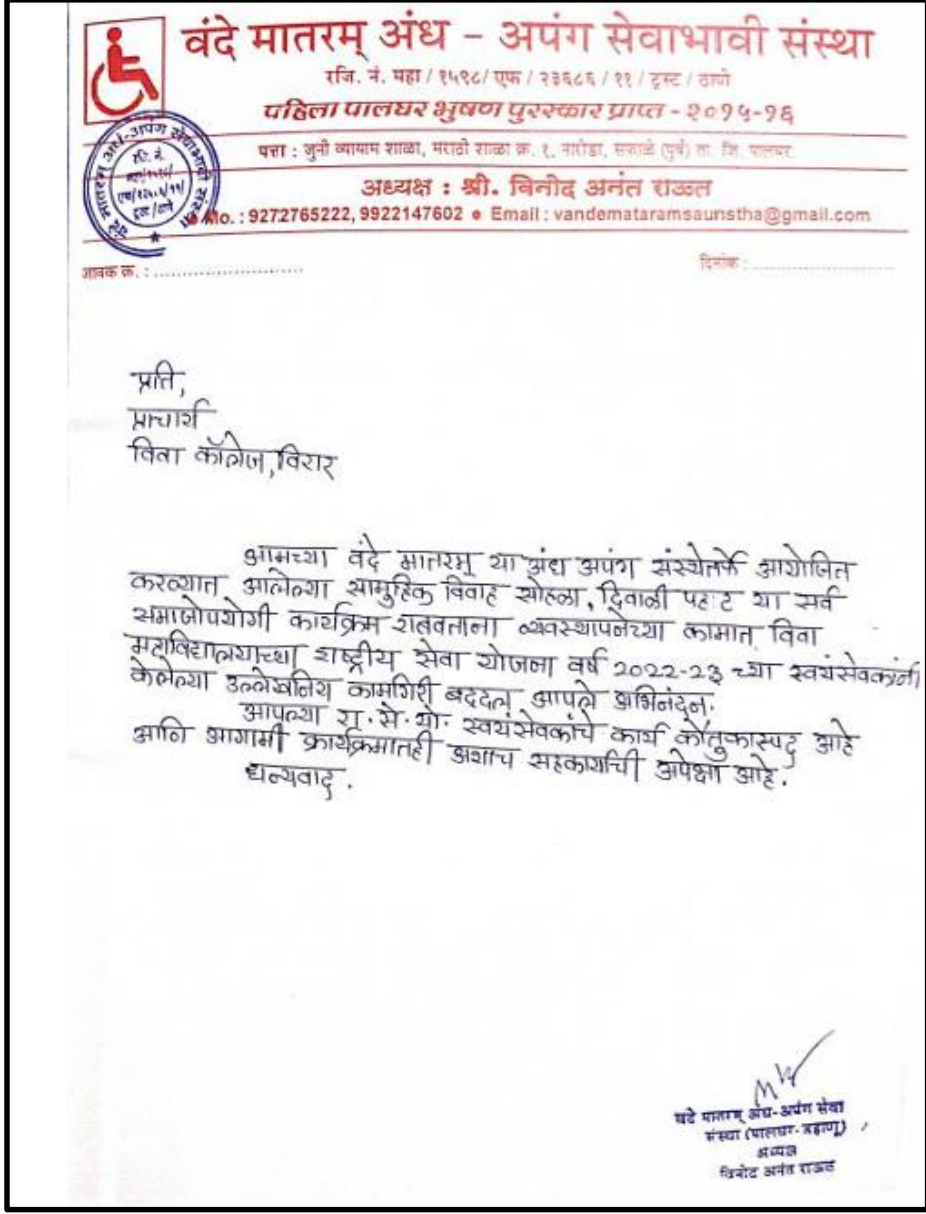 वंदे मातरम् अंध - अपंग सेवाभावी संस्था
रजि. नं. महा / १५९८/ एफ / २३६८६ / ११ / ट्रस्ट / ठाणे
पहिला पालघर भुषण पुरस्कार प्राप्त - २०१५-१६
पत्ता : जुनी व्यायाम शाळा, मराठी शाळा क्र. १. सफाळे (पुर्व) ता. जि. पालघर.
अध्यक्ष : श्री. विनोद अनंत राऊत
Mo. : 9272765222, 9922147602 • Email : vandemataramsaunstha@gmail.com
जावक क्र. :
दिनांक :
प्रति,
प्राचार्य
विवा कॉलेज, विरार
आमच्या वंदे मातरम् या अंध अपंग संस्थेतर्फे आयोजित
करण्यात आलेल्या सामुहिक विवाह सोहळा, दिवाळी पहाट या सर्व
समाजोपयोगी कार्यक्रम राबवताना व्यवस्थापनेच्या कामात विवा
महाविद्यालयाच्या राष्ट्रीय सेवा योजना वर्ष 2022-23 च्या स्वयंसेवकांनी
केलेल्या उल्लेखनिय कामगिरी बददल आपले अभिनंदन.
आपल्या रा. से. यो. स्वयंसेवकांचे कार्य कौतुकास्पद आहे
आणि आगामी कार्यक्रमातही अशाच सहकार्याची अपेक्षा आहे.
धन्यवाद.
वंदे मातरम् अंध-अपंग सेवा
संस्था (पालघर-डहाणू)
अध्यक्ष
विनोद अनंत राऊत